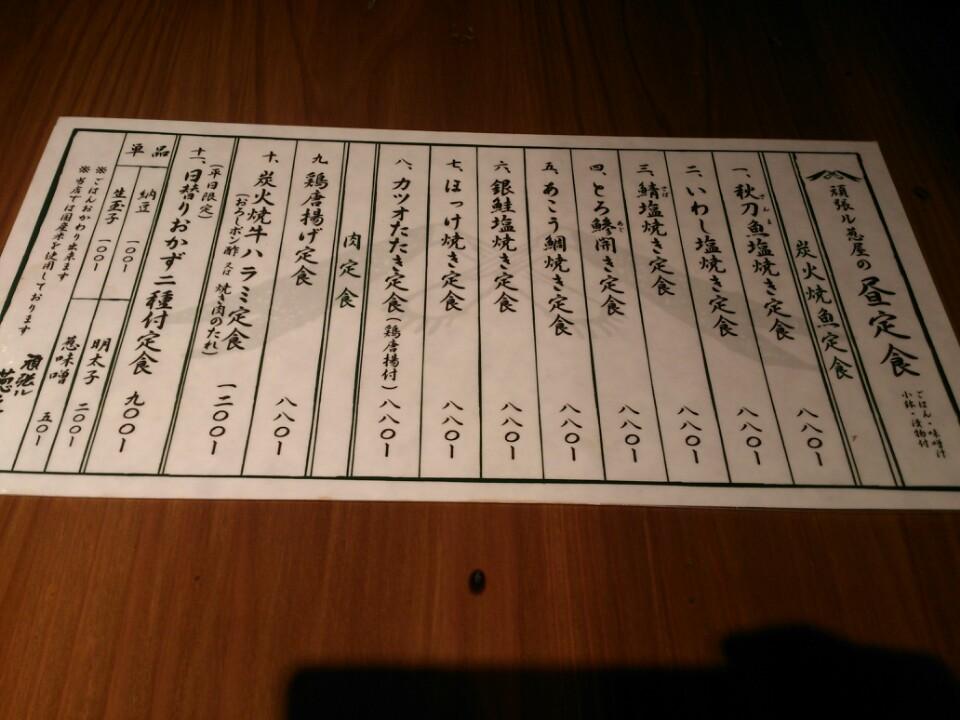 頑張ル葱屋の昼定食
ごはん・味噌汁
小鉢・漬物付
炭火焼魚定食
一、秋刀魚塩焼き定食 八八〇ー
二、いわし塩焼き定食 八八〇ー
三、鯖塩焼き定食 八八〇ー
四、とろ鯵開き定食 八八〇ー
五、あこう鯛焼き定食 八八〇ー
六、銀鮭塩焼き定食 八八〇ー
七、ほっけ焼き定食 八八〇ー
八、カツオたたき定食(鶏唐揚付) 八八〇ー
肉定食
九、鶏唐揚げ定食 八八〇ー
十、炭火焼牛ハラミ定食 一二〇〇ー
(おろしポン酢又は焼き肉のたれ)
(平日限定)
十一、日替りおかず二種付定食 九〇〇ー
単品
納豆 一〇〇ー
明太子 二〇〇ー
生玉子 一〇〇ー
葱味噌 五〇ー
※ごはんおかわり出来ます
※当店では国産米を使用しております
頑張ル